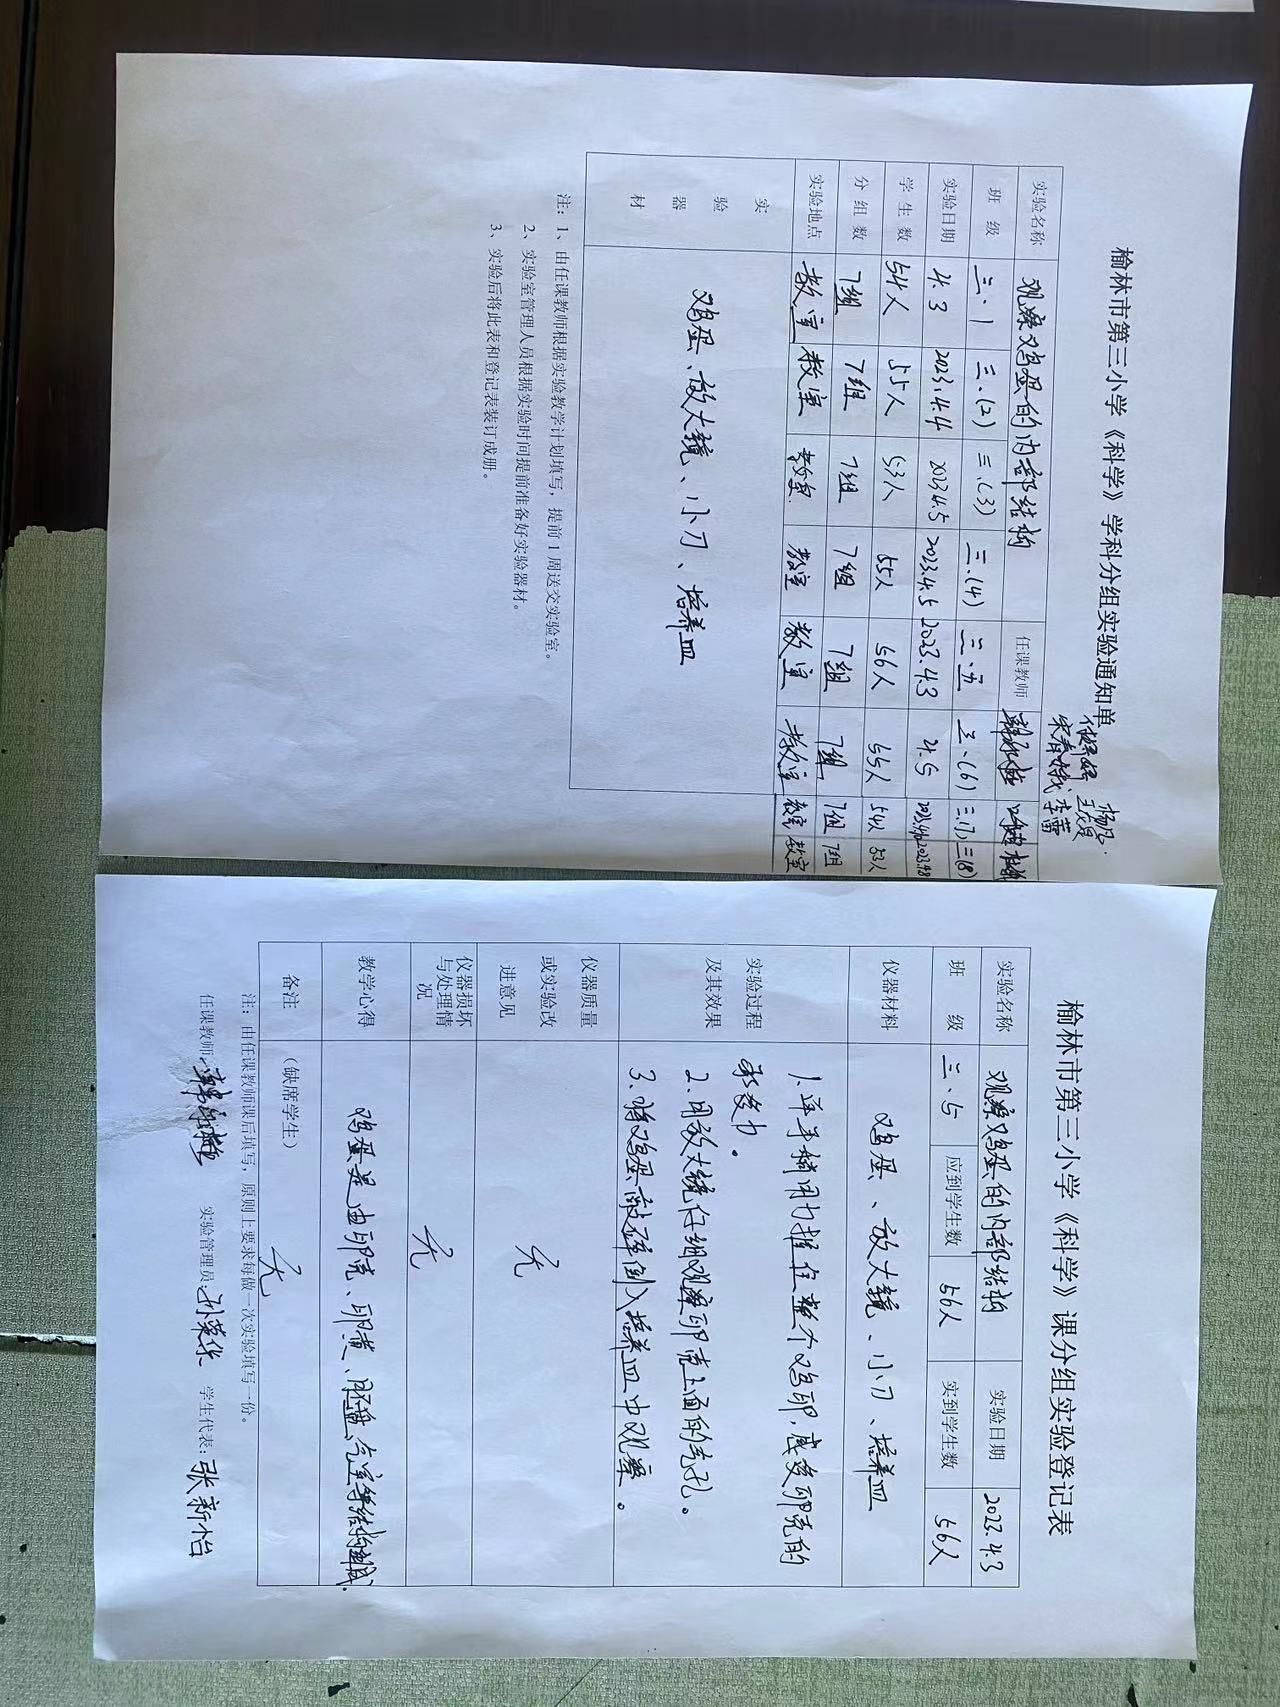 榆林市第三小学《科学》学科分组实验通知单
杨
宋春娥 李蕾
实验名称 观察鸡蛋的内部结构 任课教师
班 级 三.1 三.(2) 三.(3) 三.(4) 三.五 三.(6) 三.(7) 三(8)
实验日期 4.3 2023.4.4 2023.4.5 2023.4.5 2023.4.3 4.5
学生数 54人 55人 53人 55人 56人 55人 54人 53人
分组数 7组 7组 7组 7组 7组 7组 7组 7组
实验地点 教室 教室 教室 教室 教室 教室 教室 教室
实验器材 鸡蛋、放大镜、小刀、培养皿
注：1、由任课教师根据实验教学计划填写，提前1周送交实验室。
2、实验室管理人员根据实验时间提前准备好实验器材。
3、实验后将此表和登记表装订成册。
榆林市第三小学《科学》课分组实验登记表
实验名称 观察鸡蛋的内部结构 实验日期 2023.4.3
班 级 三.5 应到学生数 56人 实到学生数 56人
仪器材料 鸡蛋、放大镜、小刀、培养皿
实验过程及其效果 1.单手稍用力握住整个鸡卵，感受卵壳的
承受力。
2.用放大镜仔细观察卵壳上面的气孔。
3.将鸡蛋敲碎倒入培养皿中观察。
仪器质量或实验改进意见 无
仪器损坏与处理情况 无
教学心得 鸡蛋是由卵壳、卵黄、胚盘、气室等结构组成.
备注 （缺席学生） 无
注：由任课教师课后填写，原则上要求每做一次实验填写一份。
任课教师： 实验管理员： 学生代表：张新怡